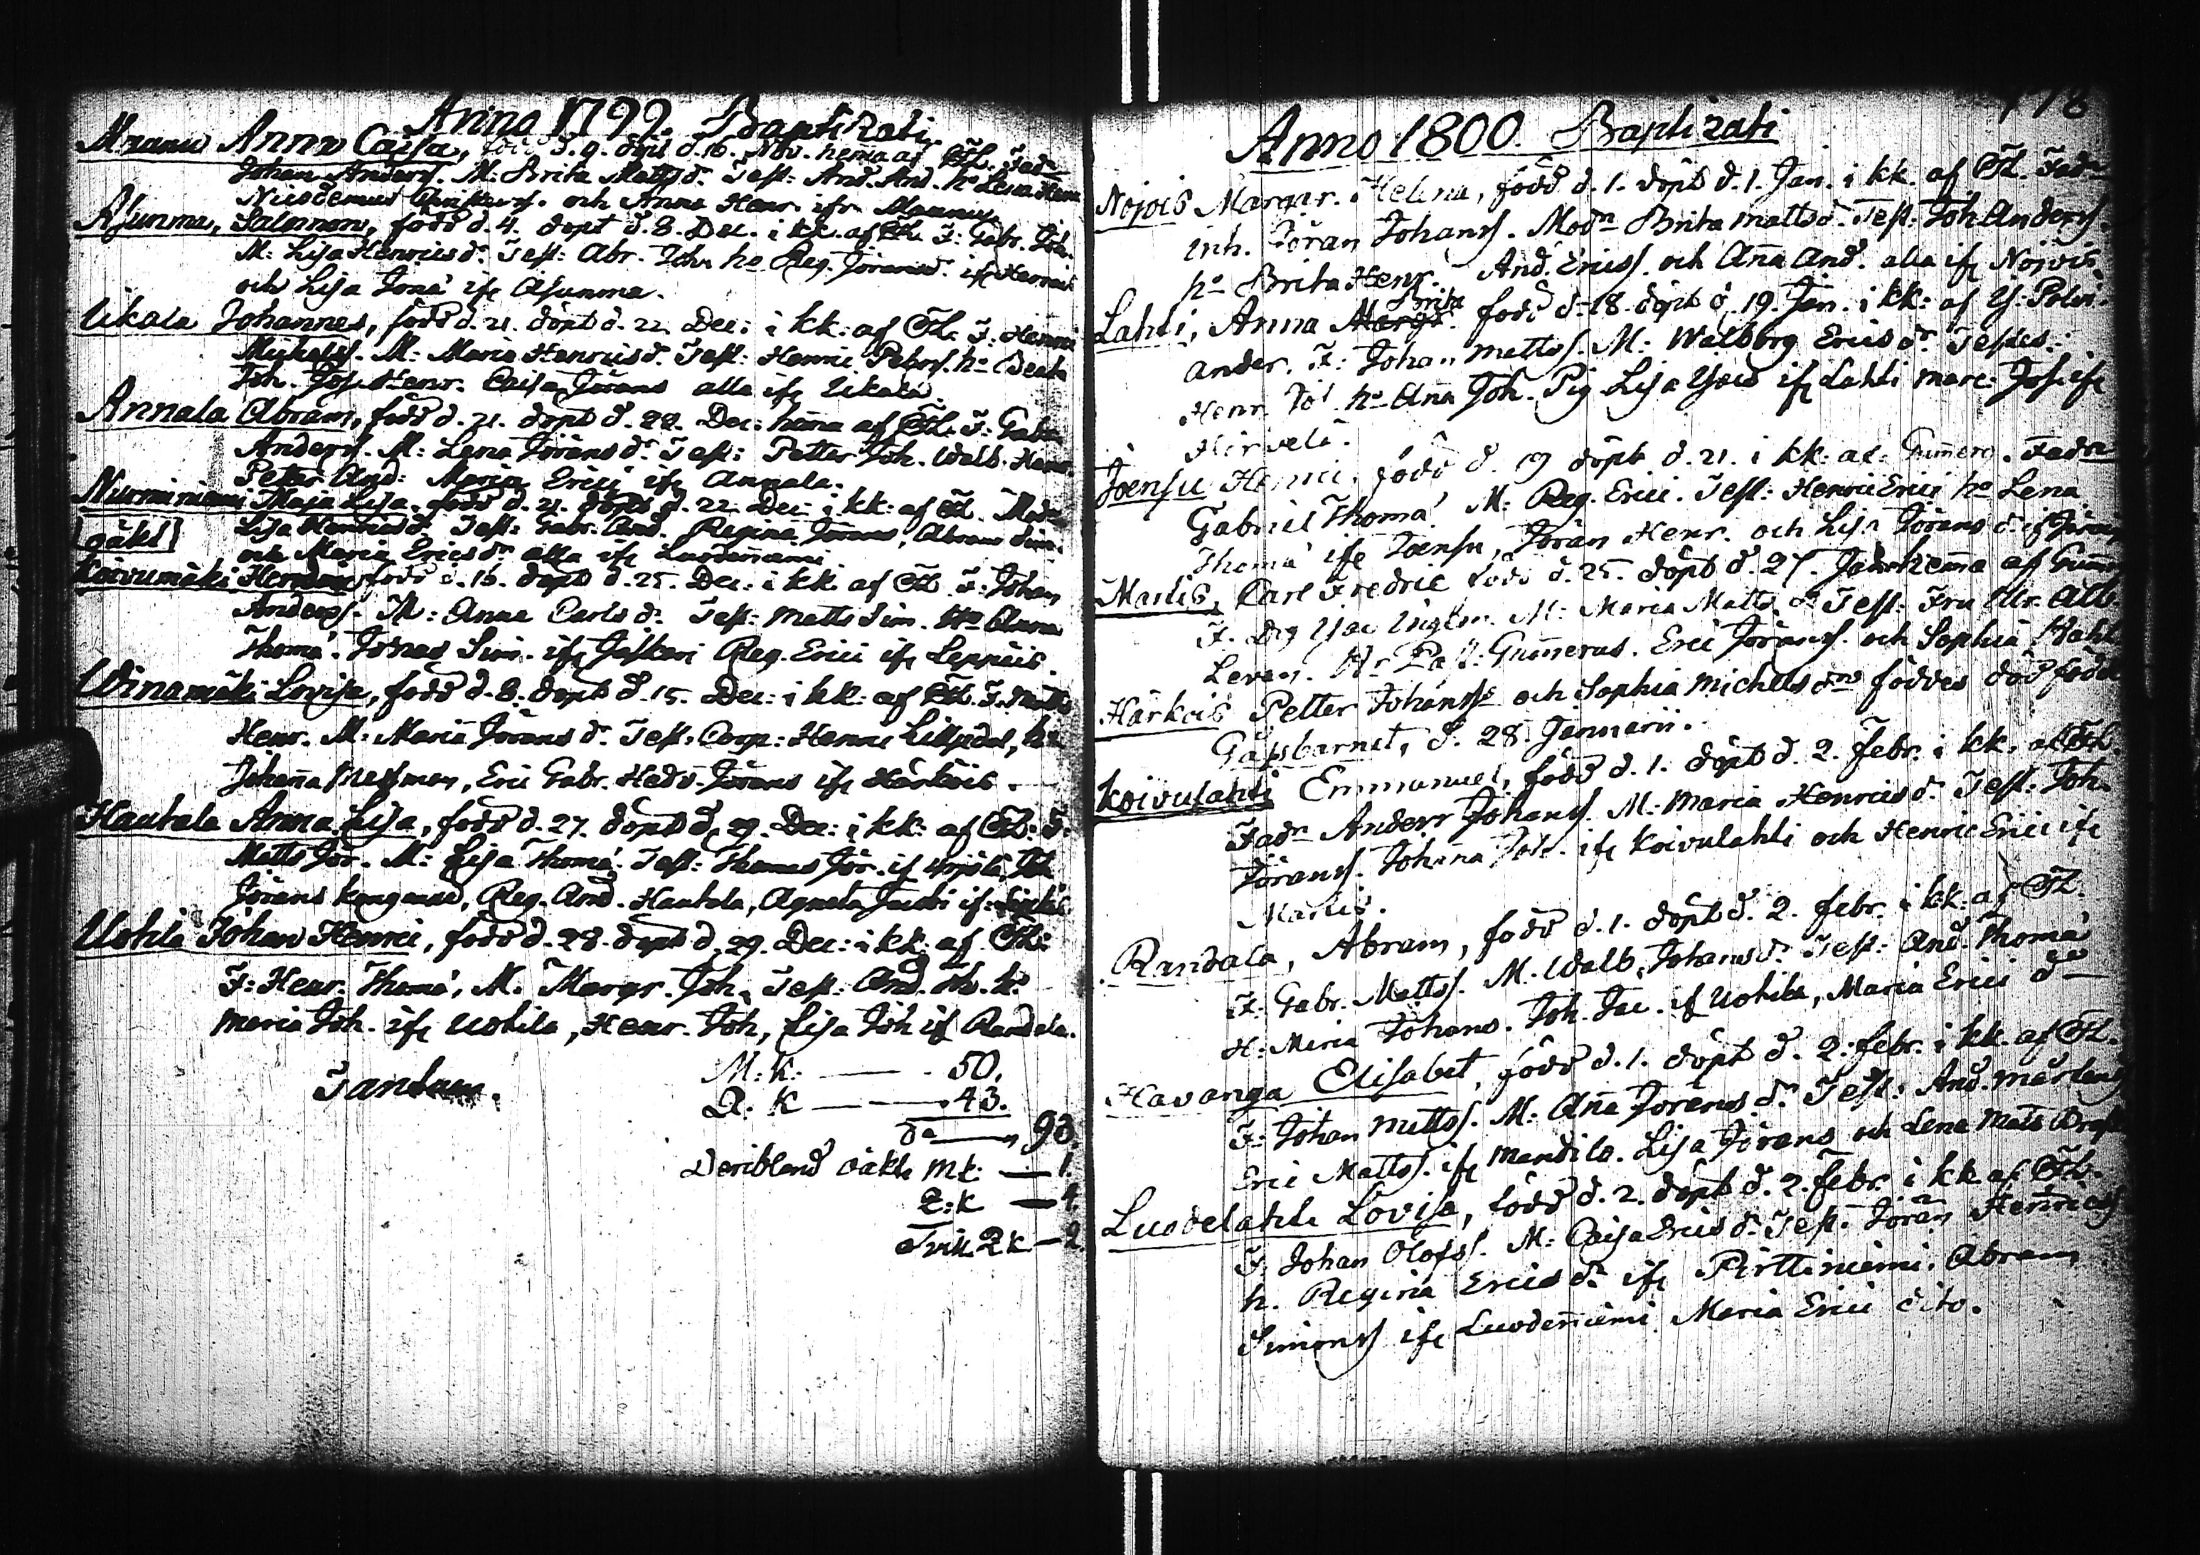 Anno 1799. Baptizati
Maanu Anna Caisa, född d. 9. döpt d. 16. Nov. hem̄a af Th. Fadn
Johan Anders. M: Brita Mattsdr. Test: And. And. ho Lena Henr
Nicodemus och Anna Henr. ifr Maanu
Asunma, Salomon, född d. 4. döpt d. 8. Dec. i kk. af Th. F: Gabr. Joh.
M: Lisa Henricsdr. Test: Abr. Joh. ho Reg. Jöransdr. ifr
och Lisa Jona ifr Asunma.
Ukala Johannes, född d. 21. döpt d. 22. Dec: i kk: af Th. F: Henric
Michelss. M: Maria Henricsdr. Test: Henric Petters. ho Beata
Joh. Jos. Henr. Caisa Jörans alla ifr Ukala.
Annala Abram, född d. 21. döpt d. 22. Dec: hem̄a af Th. F: Gabr.
Anders. M: Lena Jöransdr. Test: Petter Joh. Walb. Henr.
Petter And: Maria Erici ifr Annala.
Nurminiemi Maja Lisa, född d. 21. döpt d. 22. Dec: i kk: af Th. Modn
[oäkt] Lisa Henricsdr. Test: Gabr. And. Regina Jörans, Abram Sim.
och Maria Ericsdr alla ifr Luodenniemi.
Koivumäki född d. 16. döpt d. 25. Dec: i kk. af Th. F: Johan
Anders. M: Anna Carlsdr. Test: Matts Sim. Ho Anna
Thomæ. Jonas Sim. ifr Jaskari Reg. Erici ifr Leppeis.
Winamäki Lovisa, född d. 8. döpt d. 15. Dec: i kk: af Th. F. Matts
Henr. M: Maria Jöransdr. Test: Corp: Henric Liljedal, ho
Johan̄a Mesman, Eric Gabr. Hedv. Jörans ifr Härkois.
Hautala Anna Lisa, född d. 27. döpt d. 29. Dec: i kk: af Th: F:
Matts Jör. M: Lisa Thomæ. Test: Thomas Jör. if Joh
Jörans Reg. And. Hautala, Agneta Jacobi if:
Uotila Johan Henric, född d. 28. döpt d. 29. Dec: i kk: af Th:
F: Henr. Thomæ, M. Margr. Joh. Test: And. Th. h.
Maria Joh. ifr Uotila, Henr. Joh, Lisa Joh if Randala.
Tantum.
M: k: — 50.
Q: k — 43.
Sa — 93.
Deribland oäkta mk. — 1.
Q: k — 1.
Tvil. Qk — 2.
178
Anno 1800. Baptizati
Nojois Margar. Helena, född d. 1. döpt d. 1. Jan. i kk. af Th. Fadn
inh. Jöran Johanss. Modn Brita Mattsdr. Test: Joh Anderss.
ho Brita Henr. And. Ericss. och An̄a And. alla ifr Nojois
Lahti, Anna Brita född d. 18. döpt d. 19. Jan. i kk: af Y: Polvi-
ander. F: Johan Mattss. M: Walborg Ericsdr. Testes:
Henr. Jo ho An̄a Joh. Pig. Lisa ifr Lahti Marc: Jos. ifr
Hirvelä.
Joensu Henric, född d. 19 döpt d. 21. i kk: af Gum̄erus. Fadn
Gabriel Thomæ. M: Reg. Erici. Test: Henric Erici ho Lena
Thomæ ifr Joensu, Jöran Henr. och Lisa Jöransdr if
Martis, Carl Fredric född d. 25. döpt d. 27. Jan. hem̄a af Gum̄
F. M: Maria Mattsdr Test: Fru Ulr. Alb.
Leven. Hr Past: Gum̄erus. Eric Jöranss. och Sophia Wahl
Härkois Petter Johanss och Sophia Michelsdrs föddes död födde
Gåssbarnet, d. 28. Januarii.
Koivulahti Emmanuel, född d. 1. döpt d. 2. Febr. i kk. af Th.
Fadn Anders Johanss. M: Maria Henricsdr. Test: Joh.
Jöranss. Johan̄a Joh. ifr Koivulahti och Henric Erici ifr
Martis.
Randala, Abram, född d. 1. döpt d. 2. febr. i kk. af Th.
F: Gabr. Mattss. M. Walb. Johansdr. Test: And. Thomæ
H: Maria Johans. Joh. Jac. if Uotila, Maria Erici do
Havanga Elisabet, född d. 1. döpt d. 2. febr. i kk. af Th.
F: Johan Mattss. M: An̄a Jöransdr. Test: And. Mårtens
Eric Mattss. ifr Mandila. Lisa Jörans och Lena Matts
Luodelahti Lovisa, född d. 2. döpt d. 2. Febr. i kk af Th.
F. Johan Olofss. M: Caisa Ericsdr. Test: Jöran Henricss.
h. Regina Ericsdr ifr Pirttiniemi. Abram
Simonss ifr Luoden̄iemi Maria Erici dito.